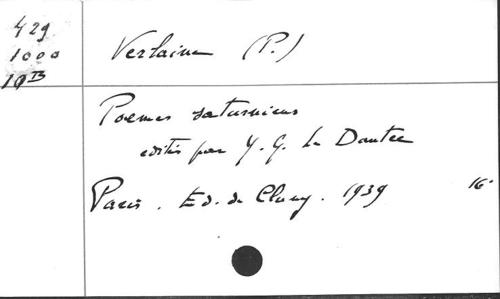 429
1000
19 B
Verlaine (P.)
Poemes saturniens
édités par Y. G. Le Dantec
Paris. Ed. de Cluny. 1939 16°